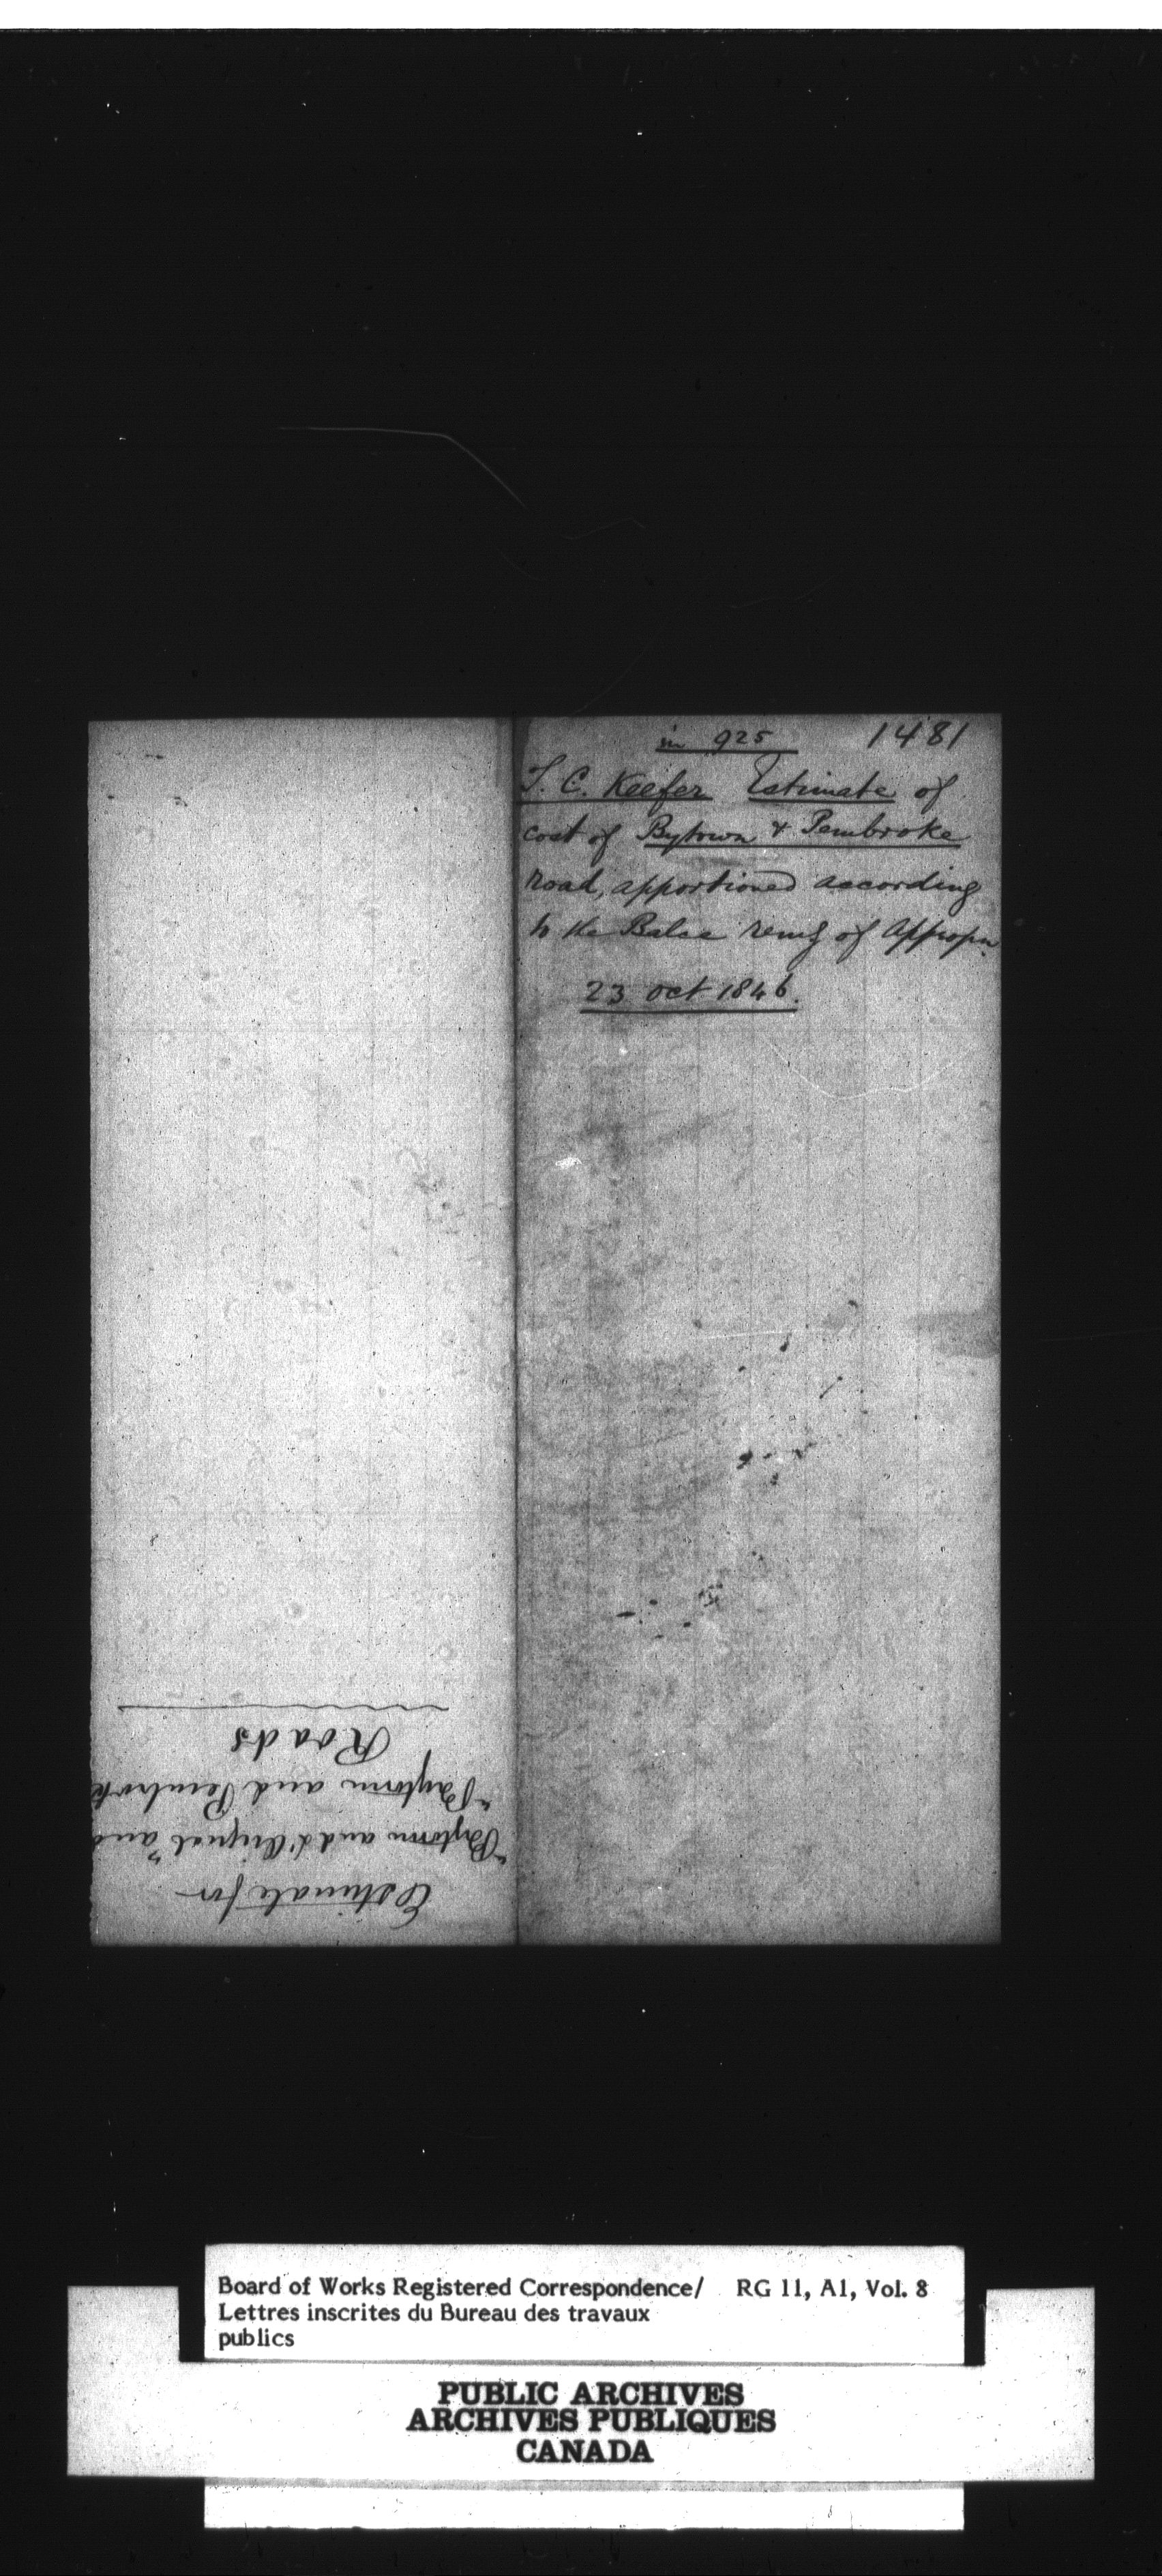 in 925 1481
T. C. Keefer Estimate of
cost of Bytown & Pembroke
road, apportioned according
to the Balce remg of Appropn.
23 Oct 1846.
Estimate for
"Bytown and L'Orignal" and
"Bytown and Pembroke
Roads
Board of Works Registered Correspondence/ RG 11, A1, Vol. 8
Lettres inscrites du Bureau des travaux
publics
PUBLIC ARCHIVES
ARCHIVES PUBLIQUES
CANADA